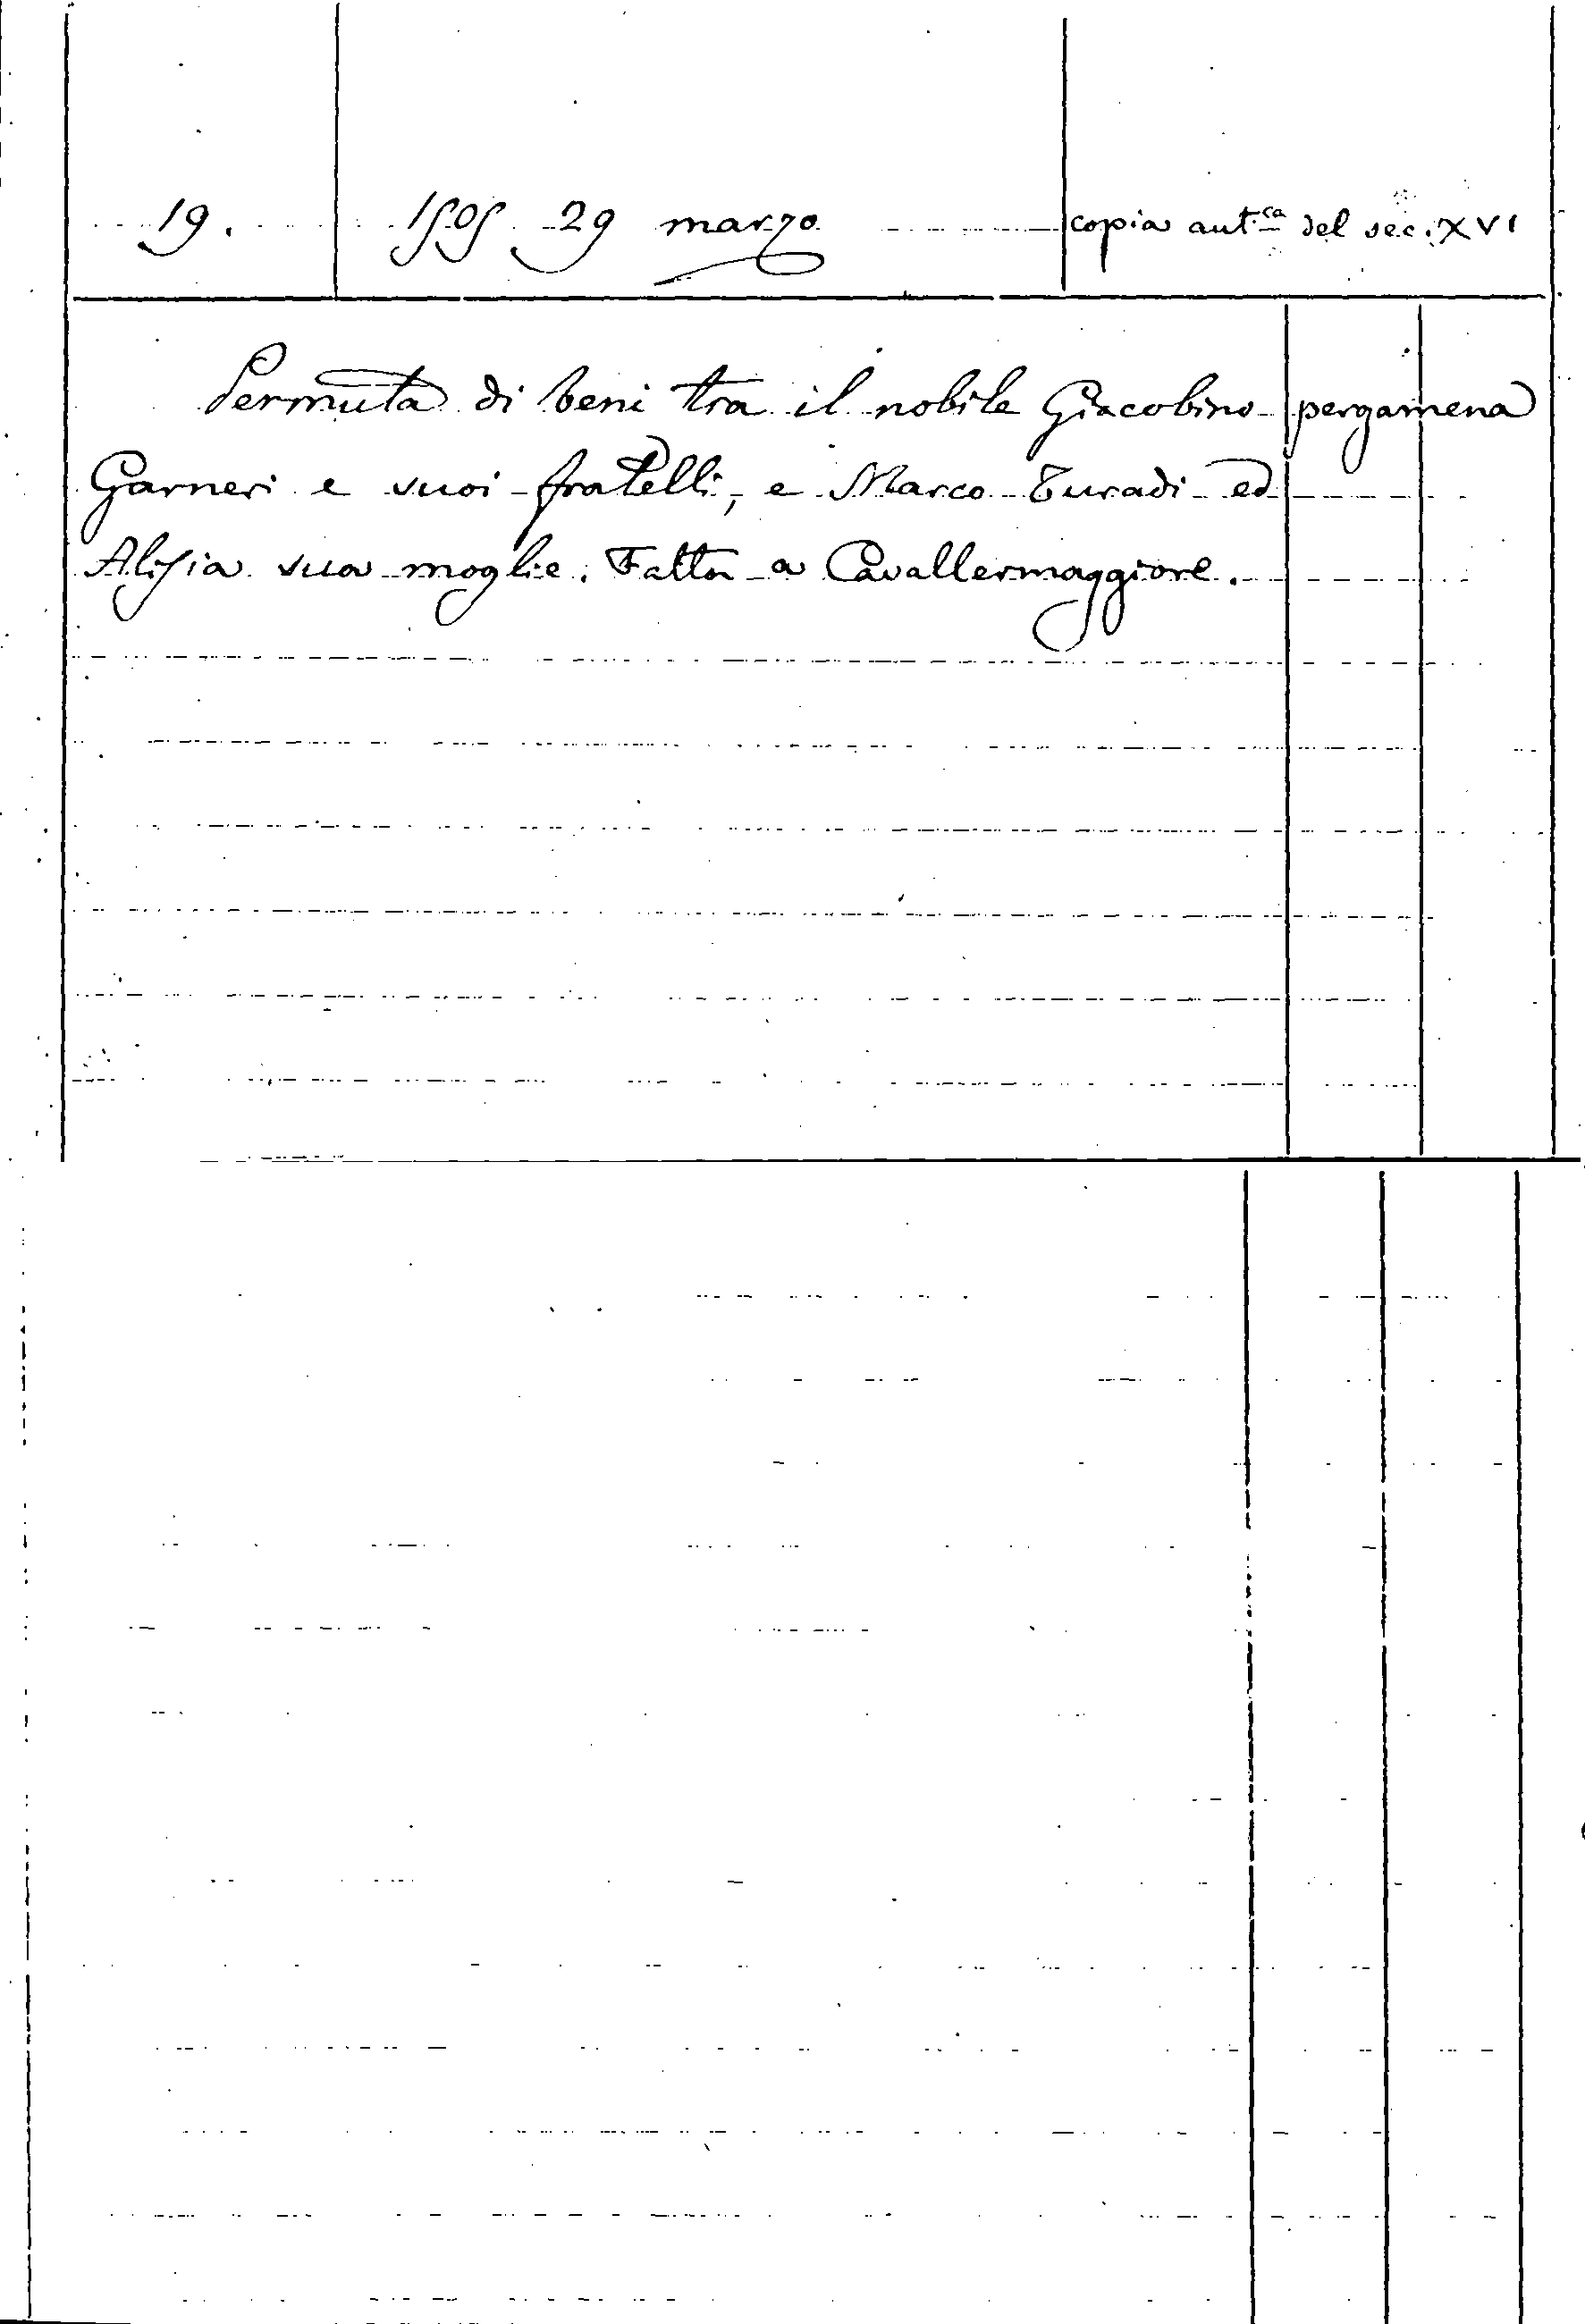 19. 1505 29 marzo copia aut.ca del sec. XVI
Permuta di beni tra il nobile Giacobino pergamena
Garneri e suoi fratelli, e Marco Turadi ed
Alisia sua moglie. Fatta a Cavallermaggiore.